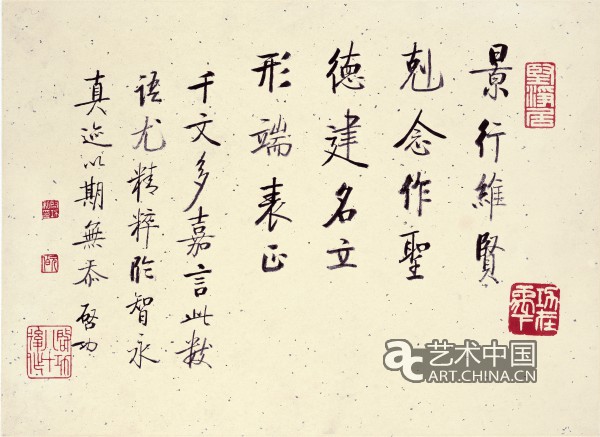 堅淨居
景行維賢
剋念作聖
德建名立
形端表正
千文多嘉言此數
語尤精粹臨智永
真迹以期無忝 啓功
功在禹下
ac 艺术中国
ART.CHINA.CN